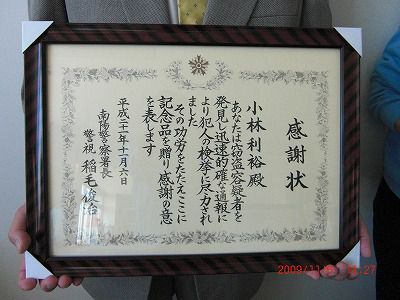 感謝状
小林利裕殿
あなたは窃盗容疑者を
発見し迅速的確な通報に
より犯人の検挙に尽力され
ました
その功労をたたえここに
記念品を贈り感謝の意
を表します
平成二十一年十一月六日
南陽警察署長
警視 稲毛俊治
2009/11/